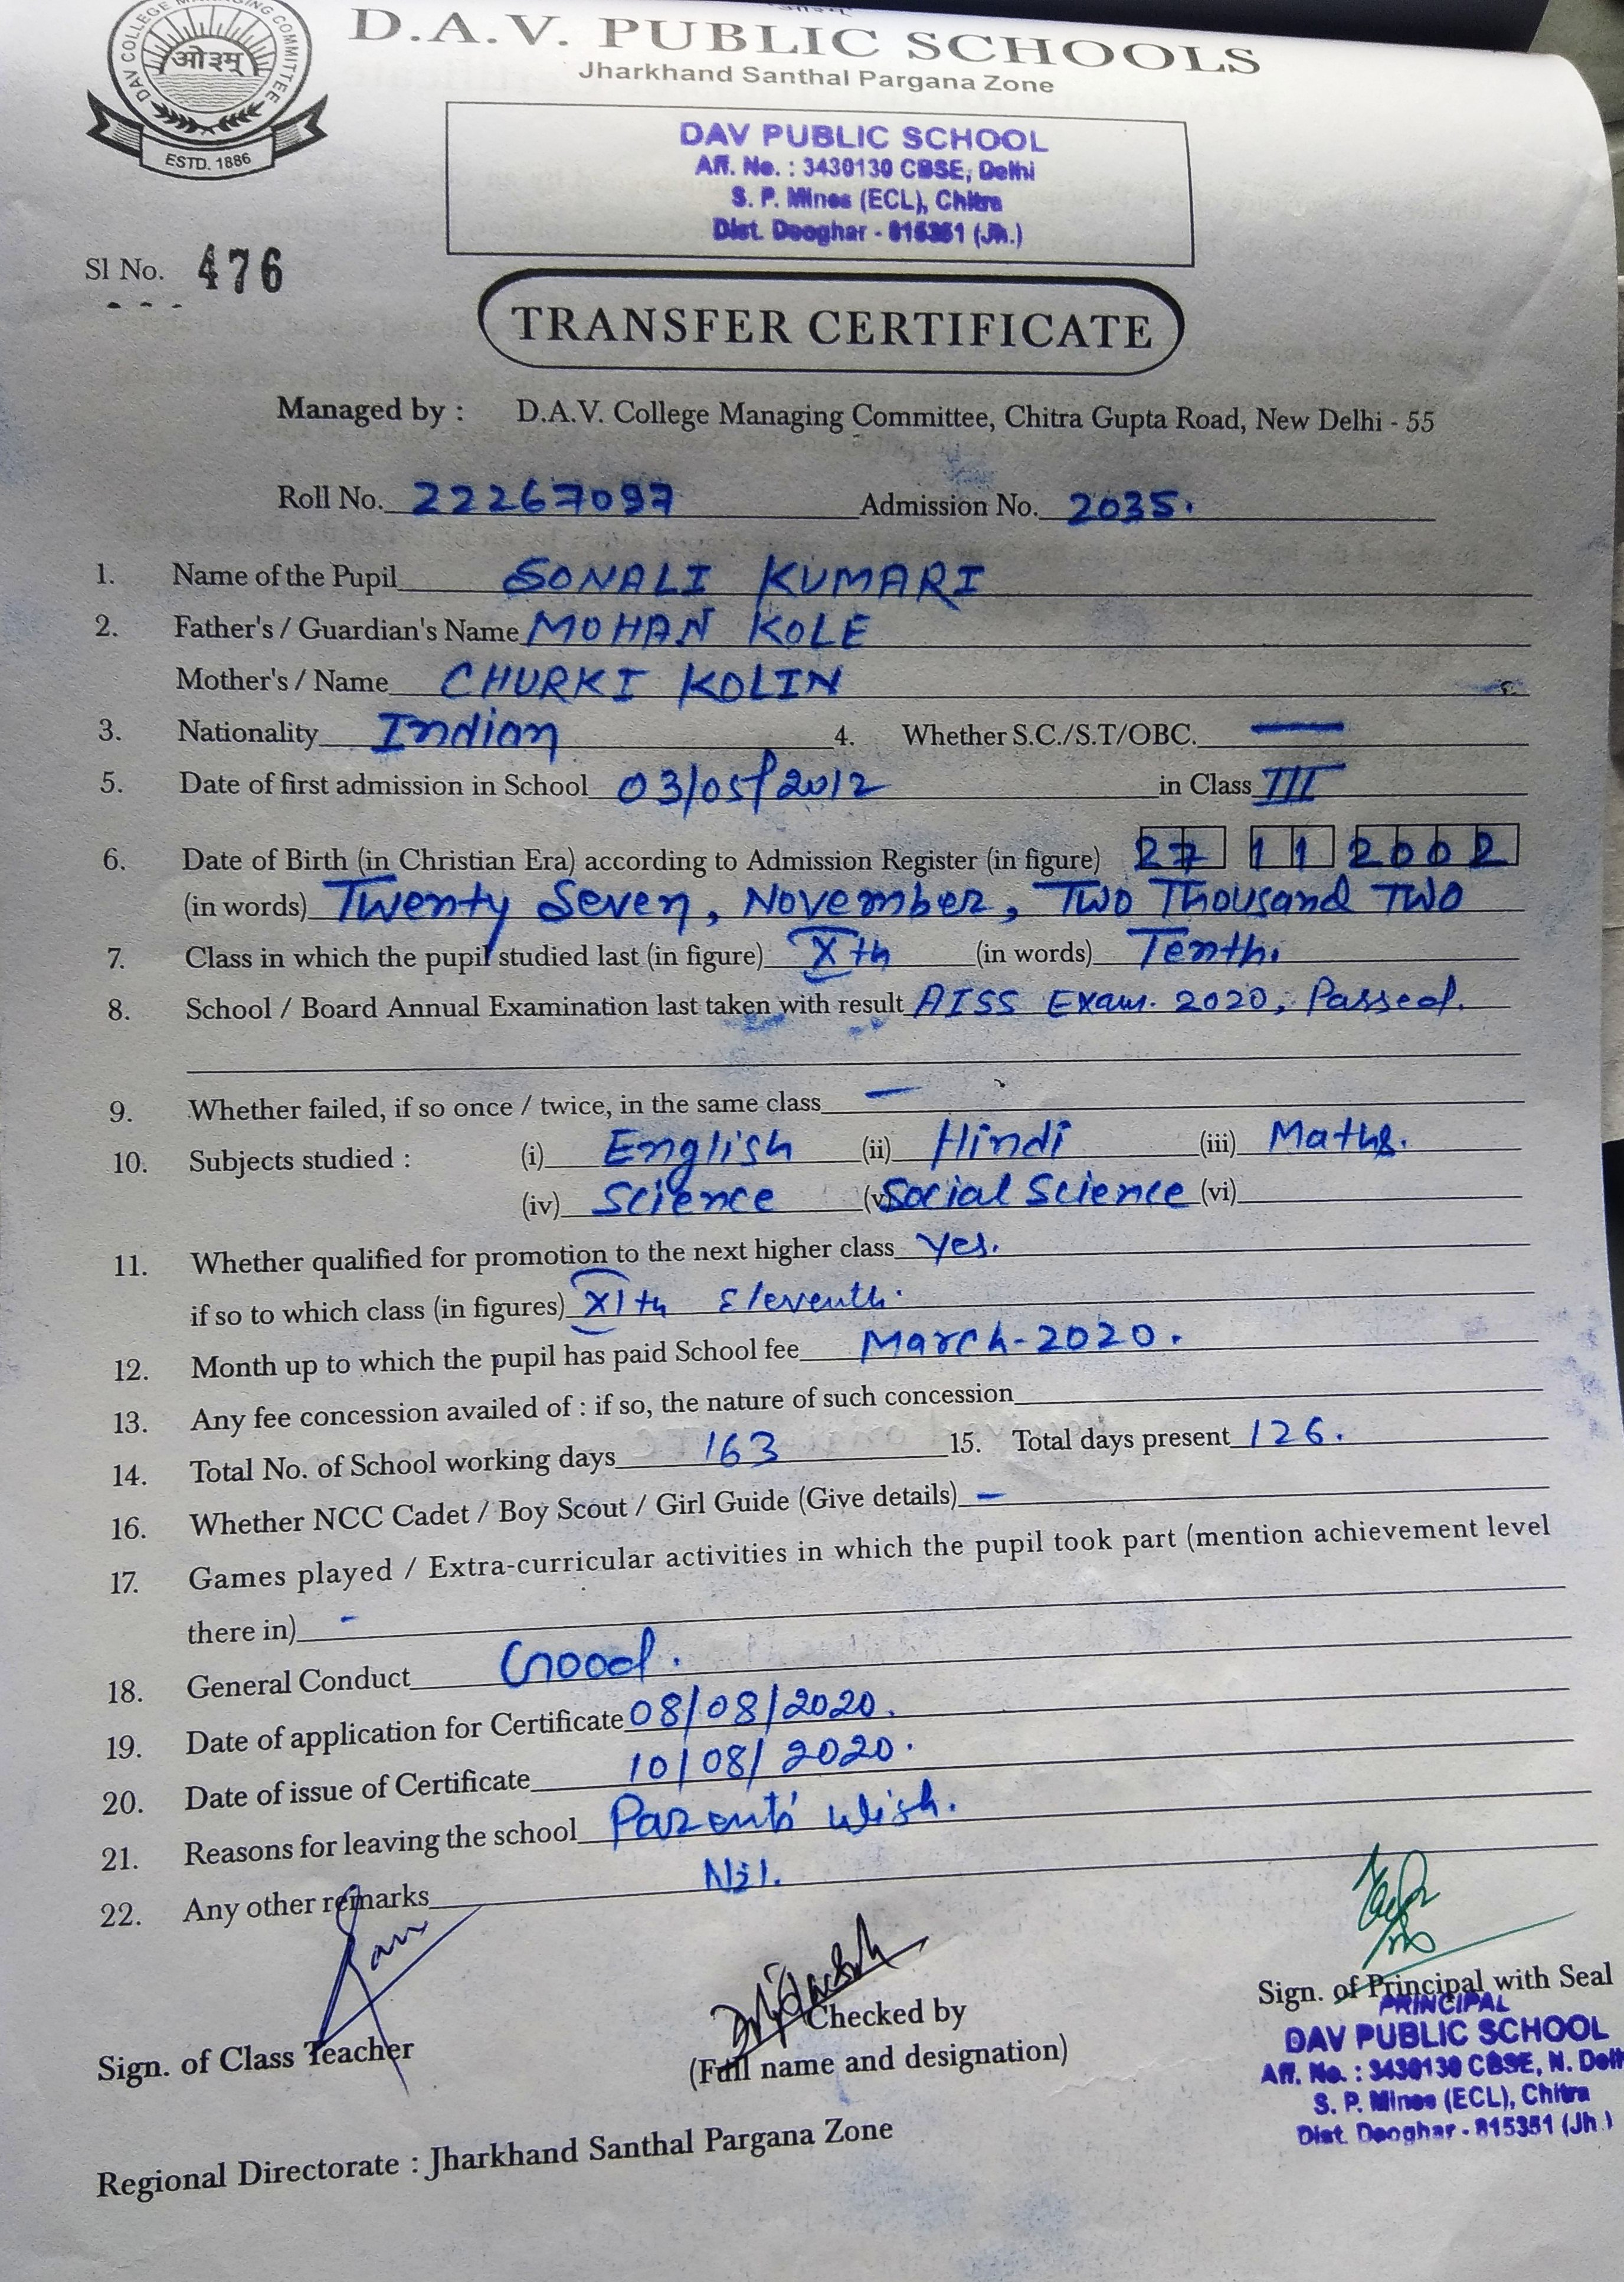 DAV COLLEGE MANAGING COMMITTEE
ओ३म्
ESTD. 1886
D.A.V. PUBLIC SCHOOLS
Jharkhand Santhal Pargana Zone
DAV PUBLIC SCHOOL
Aff. No. : 3430130 CBSE, Delhi
S. P. Mines (ECL), Chitra
Dist. Deoghar - 815351 (Jh.)
Sl No. 476
TRANSFER CERTIFICATE
Managed by : D.A.V. College Managing Committee, Chitra Gupta Road, New Delhi - 55
Roll No. 22267097 Admission No. 2035.
1. Name of the Pupil SONALI KUMARI
2. Father's / Guardian's Name MOHAN KOLE
Mother's / Name CHURKI KOLIN
3. Nationality Indian 4. Whether S.C./S.T/OBC. —
5. Date of first admission in School 03/05/2012 in Class III
6. Date of Birth (in Christian Era) according to Admission Register (in figure) 27 11 2002
(in words) Twenty Seven, November, Two Thousand Two
7. Class in which the pupil studied last (in figure) Xth (in words) Tenth.
8. School / Board Annual Examination last taken with result AISS Exam. 2020, Passed.
9. Whether failed, if so once / twice, in the same class —
10. Subjects studied : (i) English (ii) Hindi (iii) Maths.
(iv) Science (v Social Science (vi)
11. Whether qualified for promotion to the next higher class Yes.
if so to which class (in figures) XIth Eleventh.
12. Month up to which the pupil has paid School fee March-2020.
13. Any fee concession availed of : if so, the nature of such concession
14. Total No. of School working days 163 15. Total days present 126.
16. Whether NCC Cadet / Boy Scout / Girl Guide (Give details) —
17. Games played / Extra-curricular activities in which the pupil took part (mention achievement level
there in) -
18. General Conduct Good.
19. Date of application for Certificate 08/08/2020.
20. Date of issue of Certificate 10/08/2020.
21. Reasons for leaving the school Parents' wish.
22. Any other remarks Nil.
Sign. of Class Teacher
Checked by
(Full name and designation)
Sign. of Principal with Seal
PRINCIPAL
DAV PUBLIC SCHOOL
Aff. No. : 3430130 CBSE, N. Delh
S. P. Mines (ECL), Chitra
Dist. Deoghar - 815351 (Jh.)
Regional Directorate : Jharkhand Santhal Pargana Zone